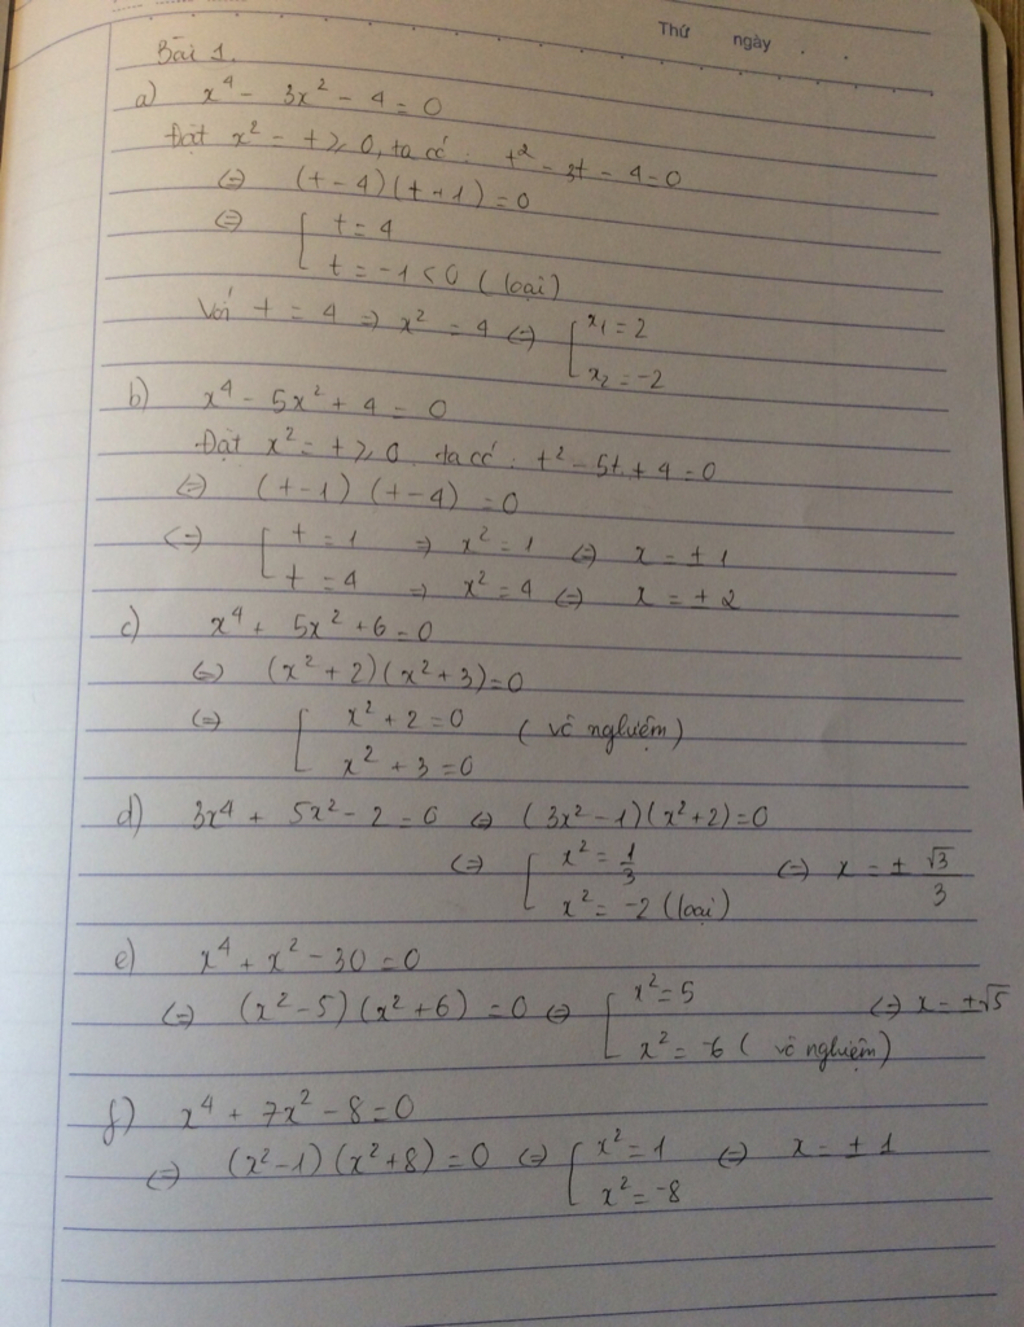 Thứ ngày . .
Bài 1.
a) x⁴ - 3x² - 4 = 0
Đặt x² = t ≥ 0, ta có : t² - 3t - 4 = 0
(=) (t - 4)(t + 1) = 0
(=) [ t = 4
t = -1 < 0 (loại)
Với t = 4 => x² = 4 (=) [ x₁ = 2
x₂ = -2
b) x⁴ - 5x² + 4 = 0
Đặt x² = t ≥ 0. ta có : t² - 5t + 4 = 0
(=) (t - 1) (t - 4) = 0
<=) [ t = 1 => x² = 1 (=) x = ± 1
t = 4 => x² = 4 (=) x = ± 2
c) x⁴ + 5x² + 6 = 0
(=) (x² + 2)(x² + 3) = 0
(=) [ x² + 2 = 0 (vô nghiệm)
x² + 3 = 0
d) 3x⁴ + 5x² - 2 = 0 (=) (3x² - 1)(x² + 2) = 0
(=) [ x² = 1/3 (=) x = ± √3/3
x² = -2 (loại)
e) x⁴ + x² - 30 = 0
(=) (x² - 5)(x² + 6) = 0 (=) [ x² = 5 (=) x = ±√5
x² = -6 (vô nghiệm)
f) x⁴ + 7x² - 8 = 0
(=) (x² - 1)(x² + 8) = 0 (=) [ x² = 1 (=) x = ± 1
x² = -8